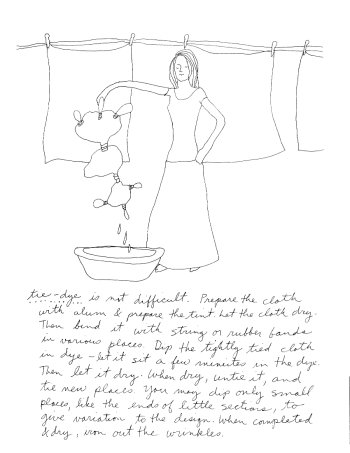 tie-dye is not difficult. Prepare the cloth
with alum & prepare the tint. Let the cloth dry.
Then bind it with string or rubber bands
in various places. Dip the tightly tied cloth
in dye - let it sit a few minutes in the dye.
Then let it dry. When dry, untie it, and
tie new places. You may dip only small
places, like the ends of little sections, to
give variation to the design. When completed
& dry, iron out the wrinkles.